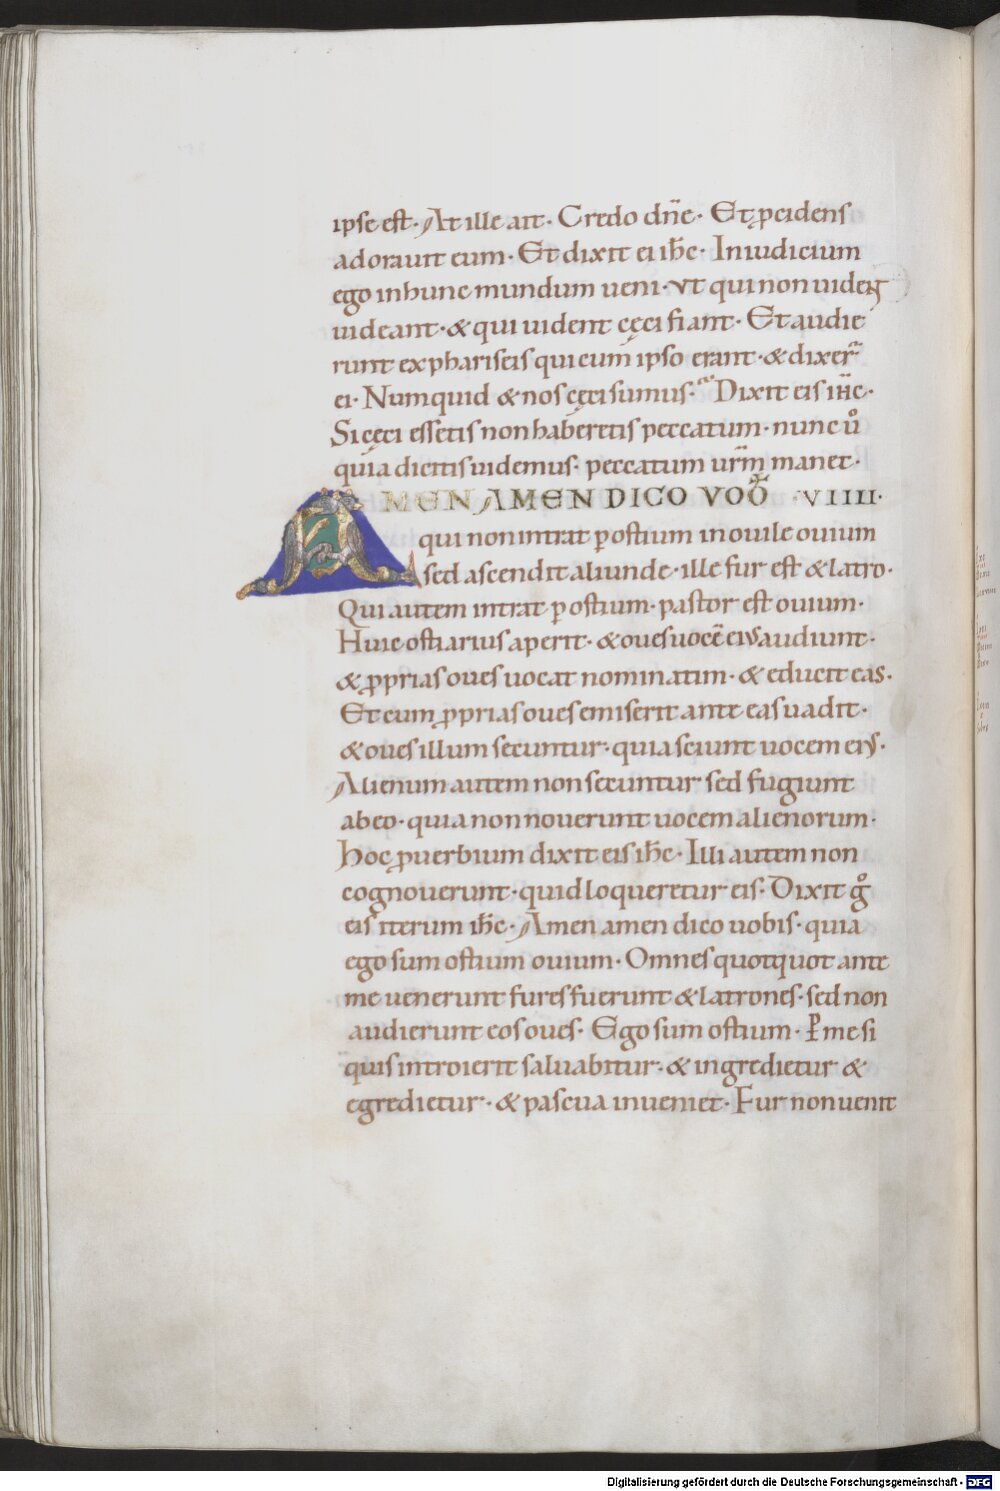 ipse est· At ille ait· Credo dn̄e· Et ꝓcidens
adorauit eum· Et dixit ei ih̄c· In iudicium
ego in hunc mundum ueni· ut qui non uideɴ̄t
uideant· & qui uident cęci fiant· Et audie
runt ex phariseis qui cum ipso erant· & dixer̄
ei· Numquid & nos cęci sumus· Dixit eis ih̄c·
Si cęci essetis non haberetis peccatum· nunc ůo
quia dicitis uidemus· peccatum ur̄m manet·
AMEN AMEN DICO VOB̄ ·VIIII·
qui non intrat ꝑ ostium in ouile ouium
sed ascendit aliunde· ille fur est & latro·
Qui autem intrat ꝑ ostium· pastor est ouium·
Huic ostiarius aperit· & oues uocē eius audiunt·
& ꝓprias oues uocat nominatim· & educit eas·
Et cum ꝓprias oues emiserit ante eas uadit·
& oues illum secuntur· quia sciunt uocem eis·
Alienum autem non secuntur sed fugiunt
ab eo· quia non nouerunt uocem alienorum·
Hoc ꝓuerbium dixit eis ih̄c· Illi autem non
cognouerunt· quid loqueretur eis· Dixit gͦ
eis iterum ih̄c· Amen amen dico uobis· quia
ego sum ostium ouium· Omnes quotquot ante
me uenerunt fures fuerunt & latrones· sed non
audierunt eos oues· Ego sum ostium· Ꝑ me si
quis introierit saluabitur· & ingredietur &
egredietur· & pascua inueniet· Fur non uenit
Digitalisierung gefördert durch die Deutsche Forschungsgemeinschaft - DFG